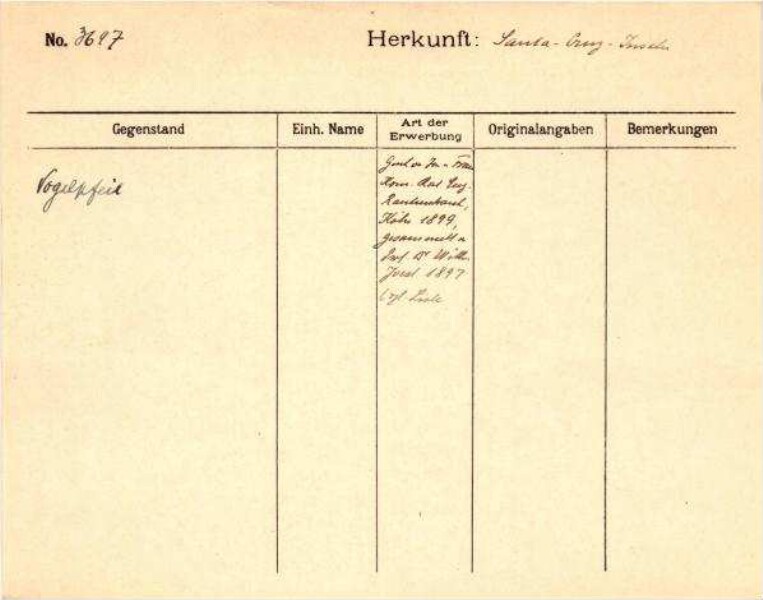 No. 3697
Herkunft: Santa-Cruz-Inseln
Gegenstand
Einh. Name
Art der Erwerbung
Originalangaben
Bemerkungen
Vogelpfeil
Gesch. v. Hr. u. Frau
Kom. Rat Eug.
Rautenstrauch,
Köln 1899,
gesammelt v.
Prof. Dr Wilh.
Joest 1897